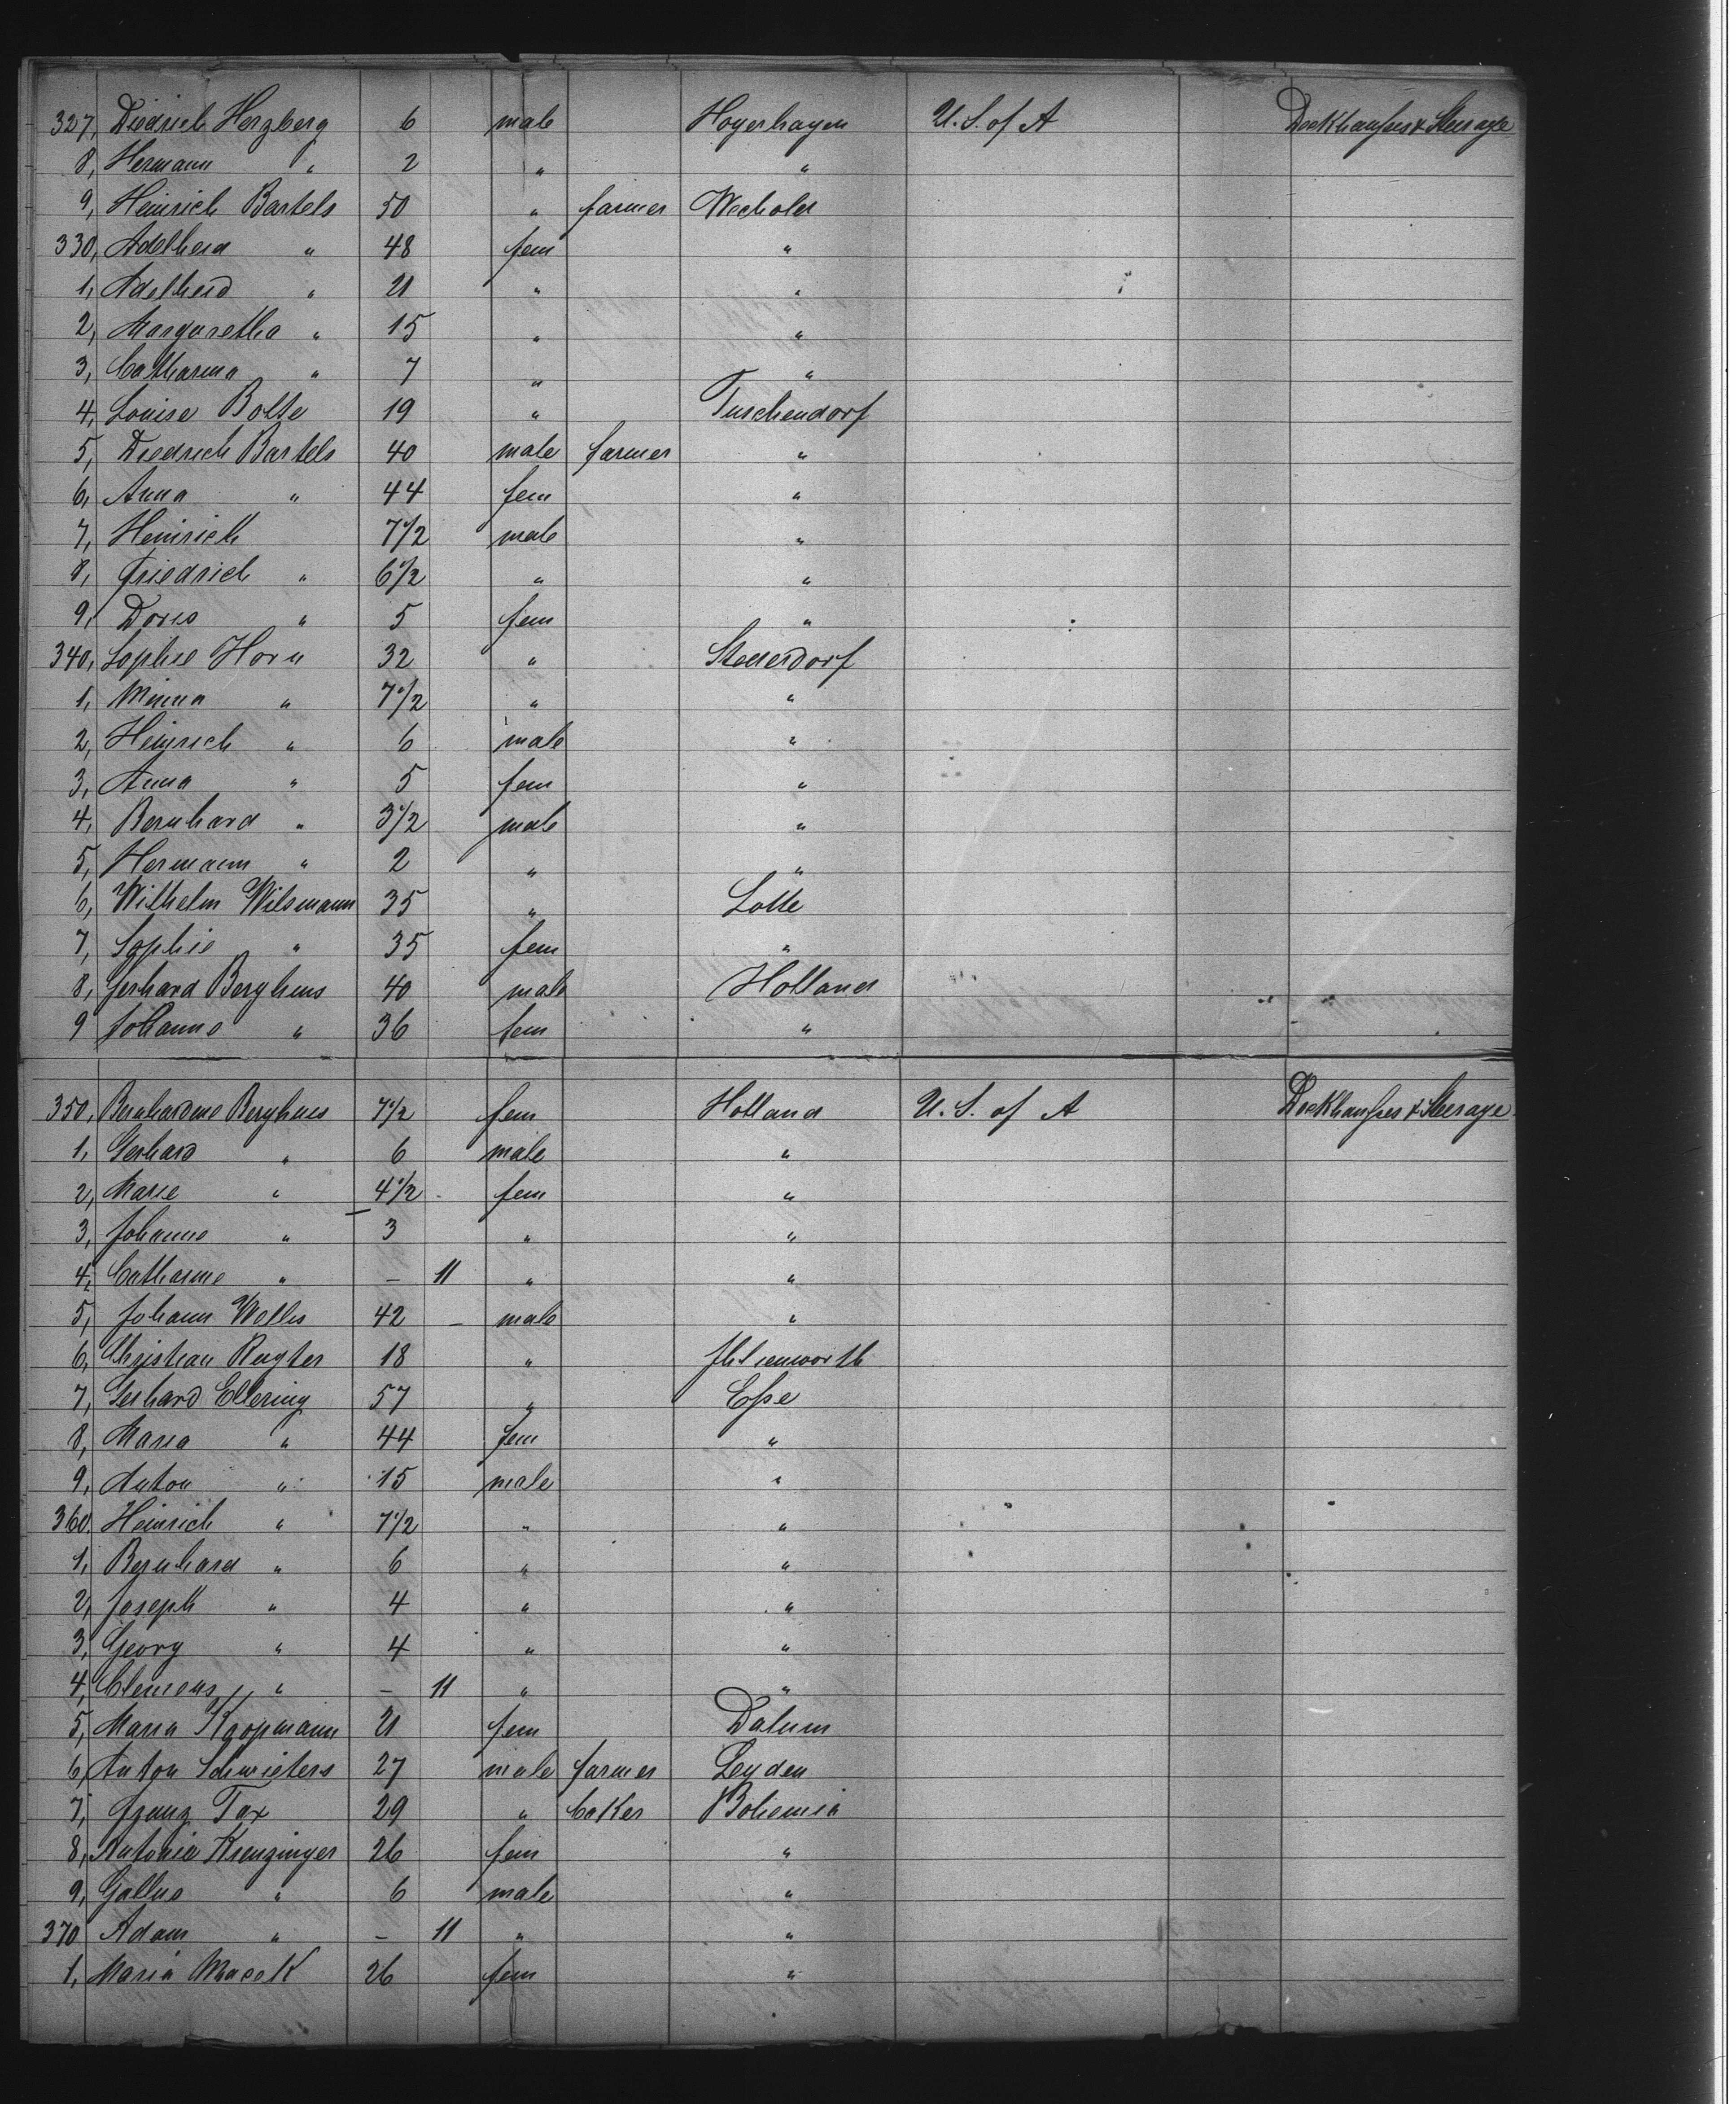 327, Diedrich Herzberg 6 male Hoyerhagen U. S. of A Deckhouses & Steerage
8, Hermann " 2 " "
9, Heinrich Bartels 50 " farmer Wechold
330, Adelheid " 48 fem "
1, Adelheid " 21 " "
2, Margaretha " 15 " "
3, Catharina " 7 " "
4, Louise Bolte 19 " Tuschendorf
5, Diedrich Bartels 40 male farmer "
6, Anna " 44 fem "
7, Heinrich 7 1/2 male "
8, Friedrich " 6 1/2 " "
9, Doris " 5 fem "
340, Sophie Horn 32 " Stellerdorf
1, Minna " 7 1/2 " "
2, Heinrich " 6 male "
3, Anna " 5 fem "
4, Bernhard " 3 1/2 male "
5, Hermann " 2 " "
6, Wilhelm Wilsmann 35 " Lotte
7, Sophie " 35 fem "
8, Gerhard Berghus 40 male Holland
9 Johanne " 36 fem "
350, Bernhardine Berghues 7 1/2 fem Holland U. S. of A Deckhouses & Steerage
1, Gerhard " 6 male "
2, Marie " 4 1/2 fem "
3, Johanne " 3 " "
4, Catharine " – 11 " "
5, Johann Wolles 42 – male "
6, Christian Rugter 18 "
7, Gerhard Ellering 57 " Esse
8, Maria " 44 fem "
9, Anton " 15 male "
360, Heinrich " 7 1/2 " "
1, Bernhard " 6 " "
2, Joseph " 4 " "
3, Georg " 4 " "
4, Clemens " – 11 " "
5, Maria Koopmann 21 fem Dalum
6, Anton Schwieters 27 male farmer Leyden
7, Franz Tax 29 " baker Bohemia
8, Antonia Kreuzinger 26 fem "
9, Gallus " 6 male "
370 Adam " – 11 " "
1, Maria Macek 26 fem "